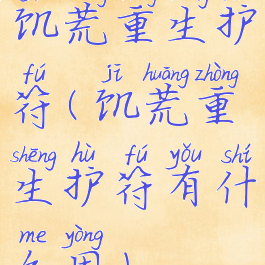 饥荒重生护
fú jī huāng zhòng
符(饥荒重
shēng hù fú yǒu shí
生护符有什
me yòng
么用)